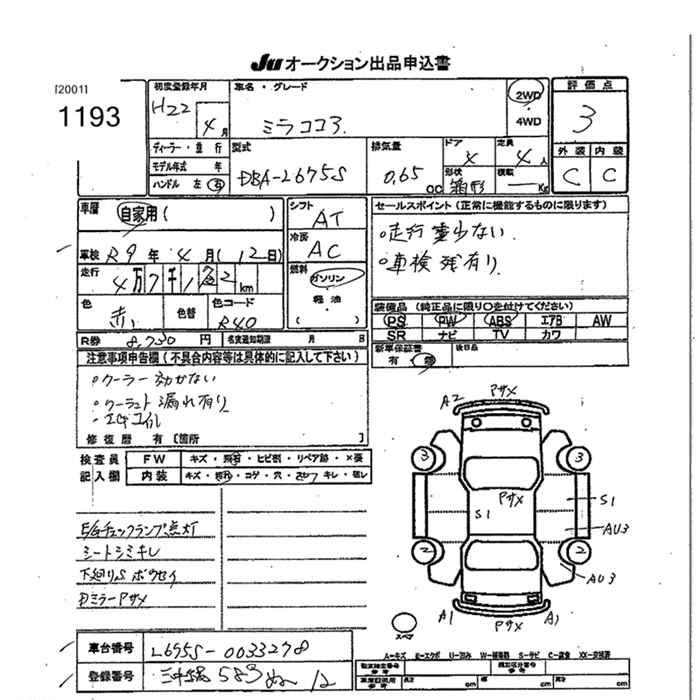 Ju オークション出品申込書
[2001]
1193
初度登録年月
H22
4月
車名・グレード
ミラココア
2WD
・
4WD
評価点
3
外装 内装
C C
ディーラー・並行
モデル年式 年
ハンドル 左 右
型式
DBA-L675S
排気量
0.65
cc
ドア
4
定員
4人
形状
箱形
積載
Kg
車歴
自家用( )
車検 R9年4月(12日)
走行
4万7千1
2km
色
赤
色替
色コード
R40
シフト
AT
冷房
AC
燃料
ガソリン
軽油
( )
セールスポイント(正常に機能するものに限ります)
・走行少ない
・車検残有り
装備品(純正品に限り○を付けてください)
PS PW ABS エアB AW
SR ナビ TV カワ
新車保証書
有 無
後日品
R券 8,730円
名変通知期限 月 日
注意事項申告欄(不具合内容等は具体的に記入して下さい)
・クーラー効かない
・クーラント漏れ有り
修復歴 有[箇所 ]
検査員
記入欄
FW
キズ・飛石・ヒビ割・リペア跡・×要
内装
キズ・汚れ・コゲ・穴・スレ・キレ・
E/Gチェックランプ点灯
シートシミキレ
下廻りS ボウセイ
Dミラー Pサメ
A2 Pサメ
3 3
Pサメ
S1 S1
AU3
2 2
AU3
A1 Pサメ A1
スペア
車台番号 L675S-0033278
登録番号 沖縄 583 ぬ 12
A-キズ E-エクボ U-凹み W-補修跡 S-サビ C-腐食 XX-交換済
長さ cm 幅 cm 高さ cm